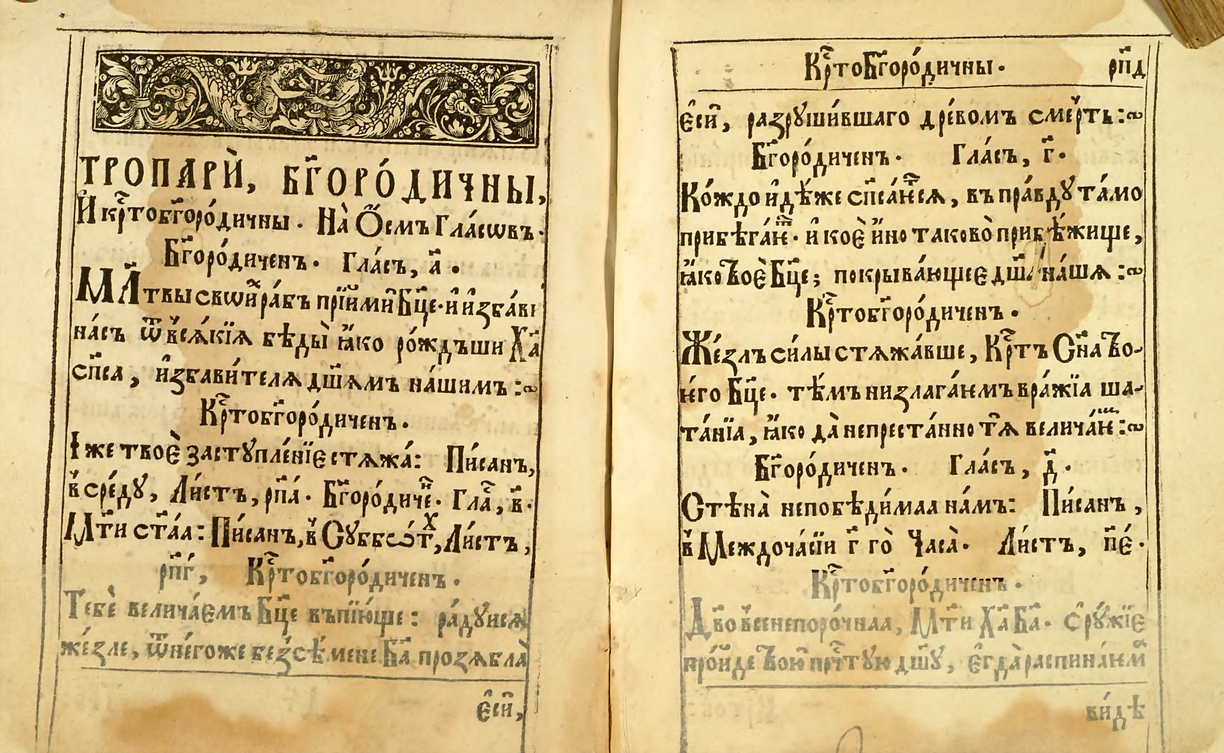 ТРОПАРЍ, БГ҃ОРО́ДИЧНЫ,
И҆ кр҇тобг҃оро́дичны. На̀ О҆́смъ Гла́сѡвъ.
Бг҃оро́диченъ. Гла́съ, а҃.
Мл҃твы свои́х ра́бъ прїимѝ Бц҃е. и҆ и҆зба́ви
на́съ ѿ всѧ́кїѧ бѣды̀ ꙗ҆́ко ро́ждъши Ха҃
сп҃са, и҆збави́телѧ дш҃а́мъ на́шимъ:
Кр҇тобг҃оро́диченъ.
И҆̀же твоѐ заступле́нїе стѧжа̀: Пи́санъ,
в̾ сре́ду, Ли́стъ, рп҃а. Бг҃оро́диче҇н. Гла҇, в҃.
Мт҃и ст҃аѧ: Пи́санъ, в̾ Суббѡ́тх, Ли́стъ,
рп҃г, Кр҇тобг҃оро́диченъ.
Тебѐ велича́емъ Бц҃е въпїю́ще: ра́дуисѧ
же́зле, ѿ негоже без̾ сѣ́мене Бг҃а прозѧблà
є҆сѝ,
Кр҇тоБг҃оро́дичны. рп҃д
є҆сѝ, разруши́вшаго дре́вомъ сме́рть:
Бг҃оро́диченъ. Гла́съ, г҃.
Ко́ждо и҆дѣ́же сп҃са́е҇тсѧ, въ пра́вду та́мо
прибѣга́е҇т. и҆ коѐ и҆но таковò прибѣ́жище,
ꙗ҆́ко Твоѐ Бц҃е; покрыва́ющее дш҃а на́шѧ:
Кр҇тобг҃оро́диченъ.
Же́злъ си́лы стѧжа́вше, Кр҇тъ Сн҃а Тво-
е҆го̀ Бц҃е. тѣ́мъ низлага́емъ вра́жїа ша-
та́нїа, ꙗ҆́ко да̀ непреста́нно тѧ̀ велича́е҇м:
Бг҃оро́диченъ. Гла́съ, д҃.
Стѣнà непобѣди́маа на́мъ: Пи́санъ,
в̾ Междоча́сїи г҃ гò Часа̀. Ли́стъ, п҃е.
Кр҇тобг҃оро́диченъ.
Дв҃о всенепоро́чнаа, Мт҃и Ха҃ Бг҃а. Ѻ҆ру́жїе
про́йде Твою̀ пр҇чтую дш҃у, є҆гдà распина́ема
ви́дѣ